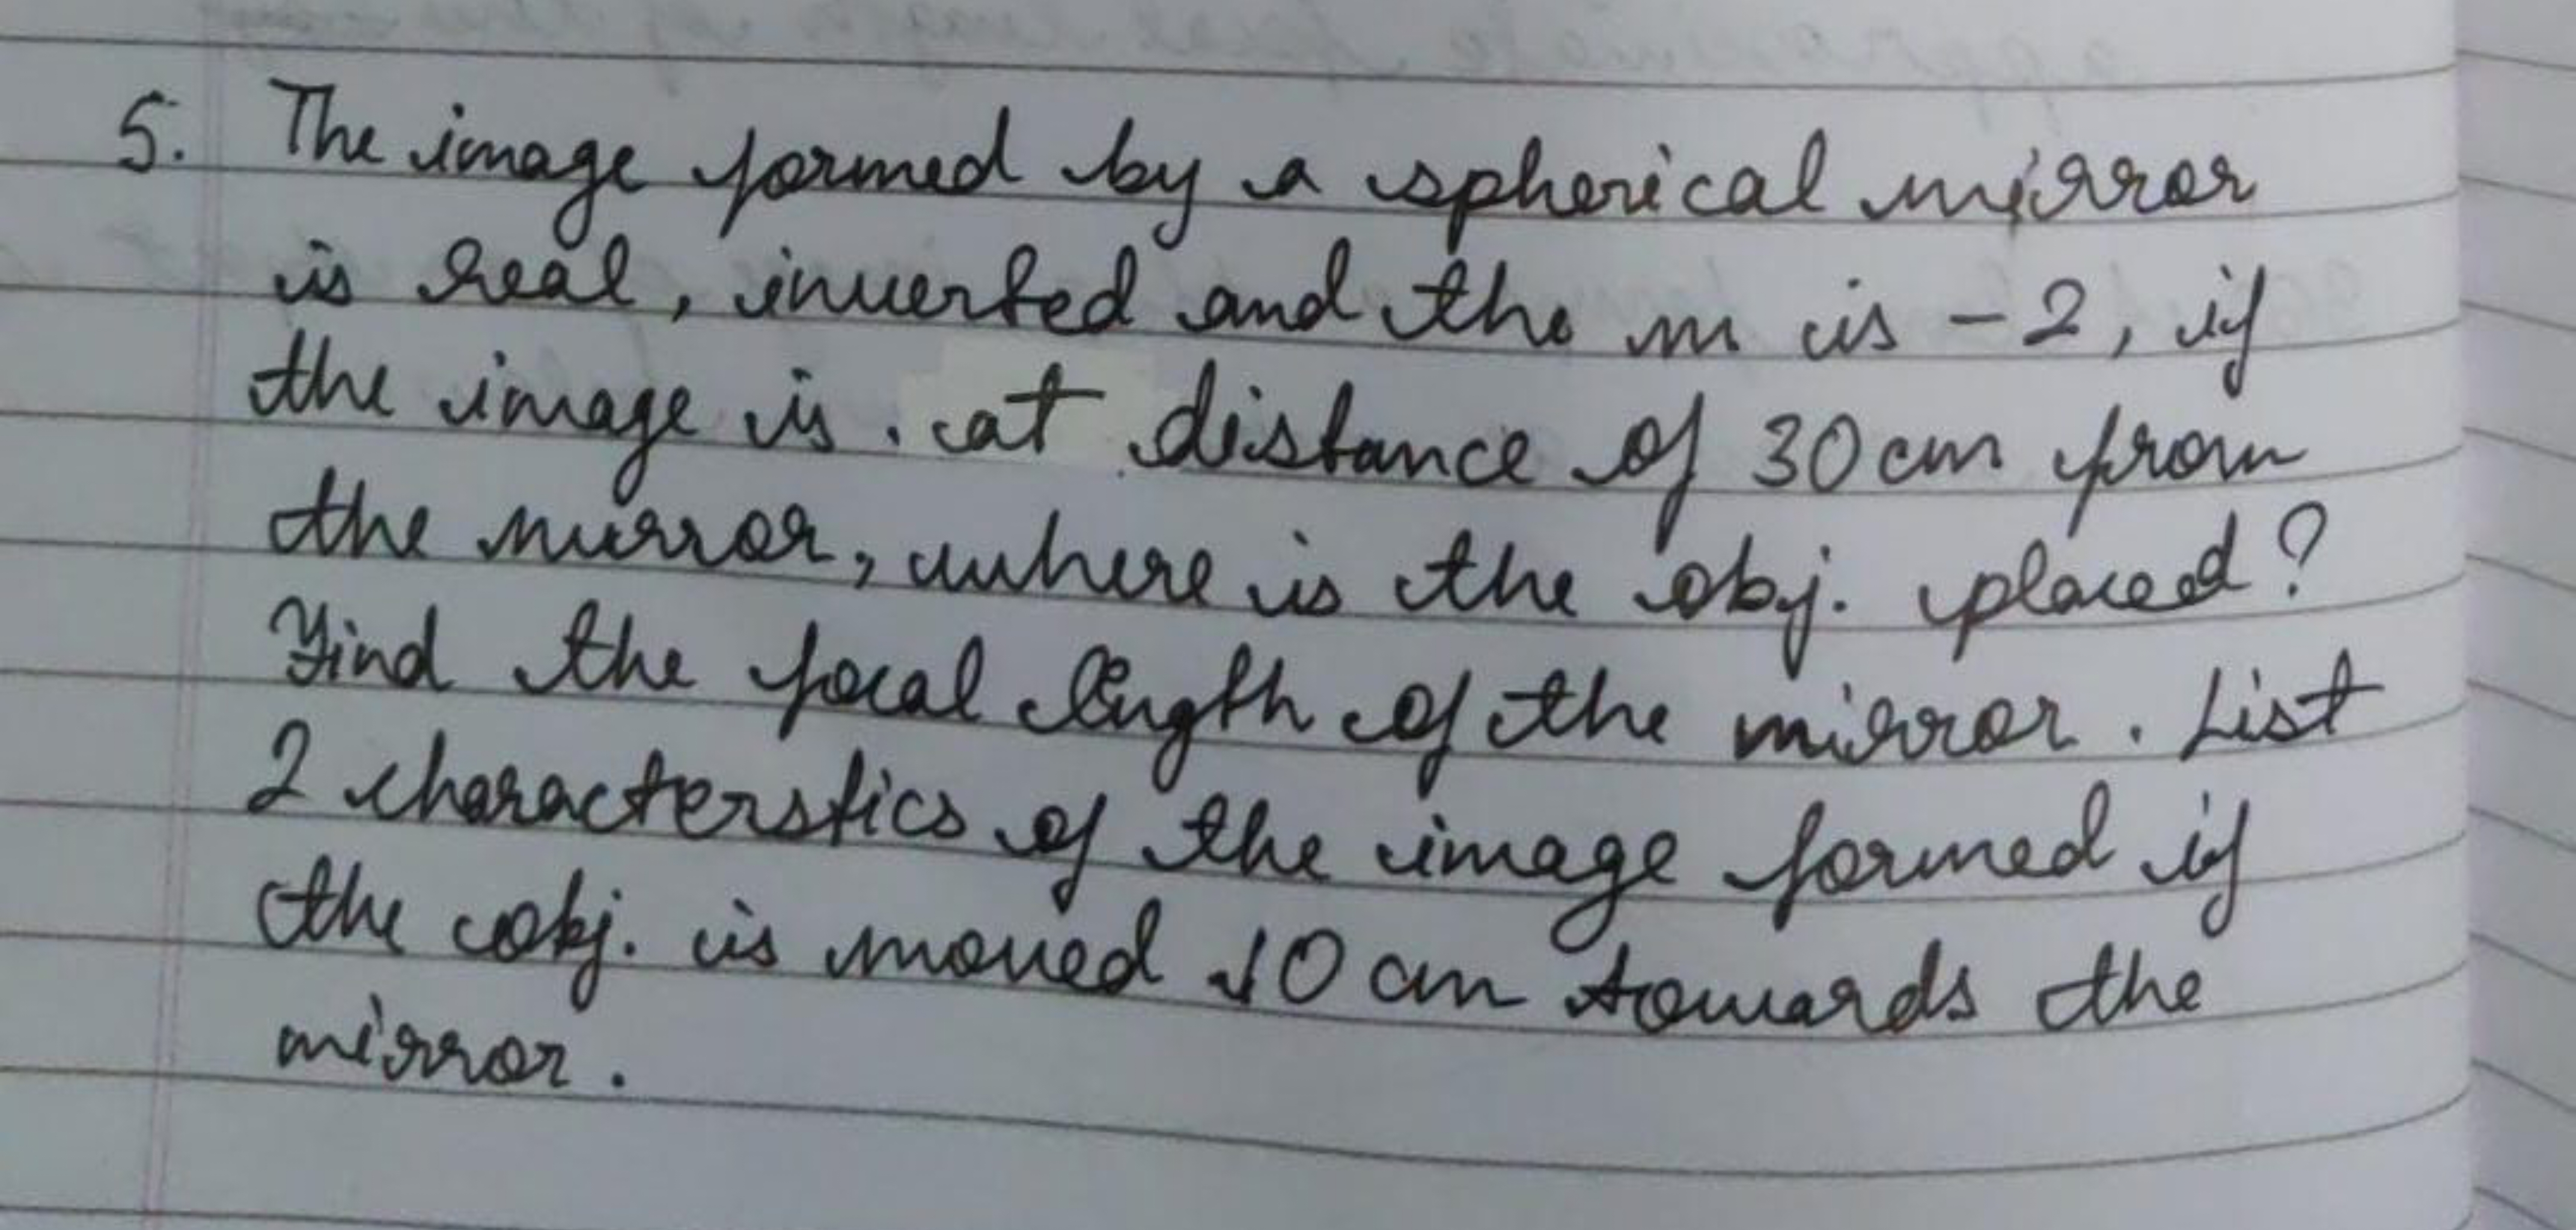 5. The image formed by a spherical mirror
is real, inverted and the m is -2, if
the image is at distance of 30 cm from
the mirror, where is the obj. placed?
Find the focal length of the mirror. List
2 characterstics of the image formed if
the obj. is moved 10 cm towards the
mirror.